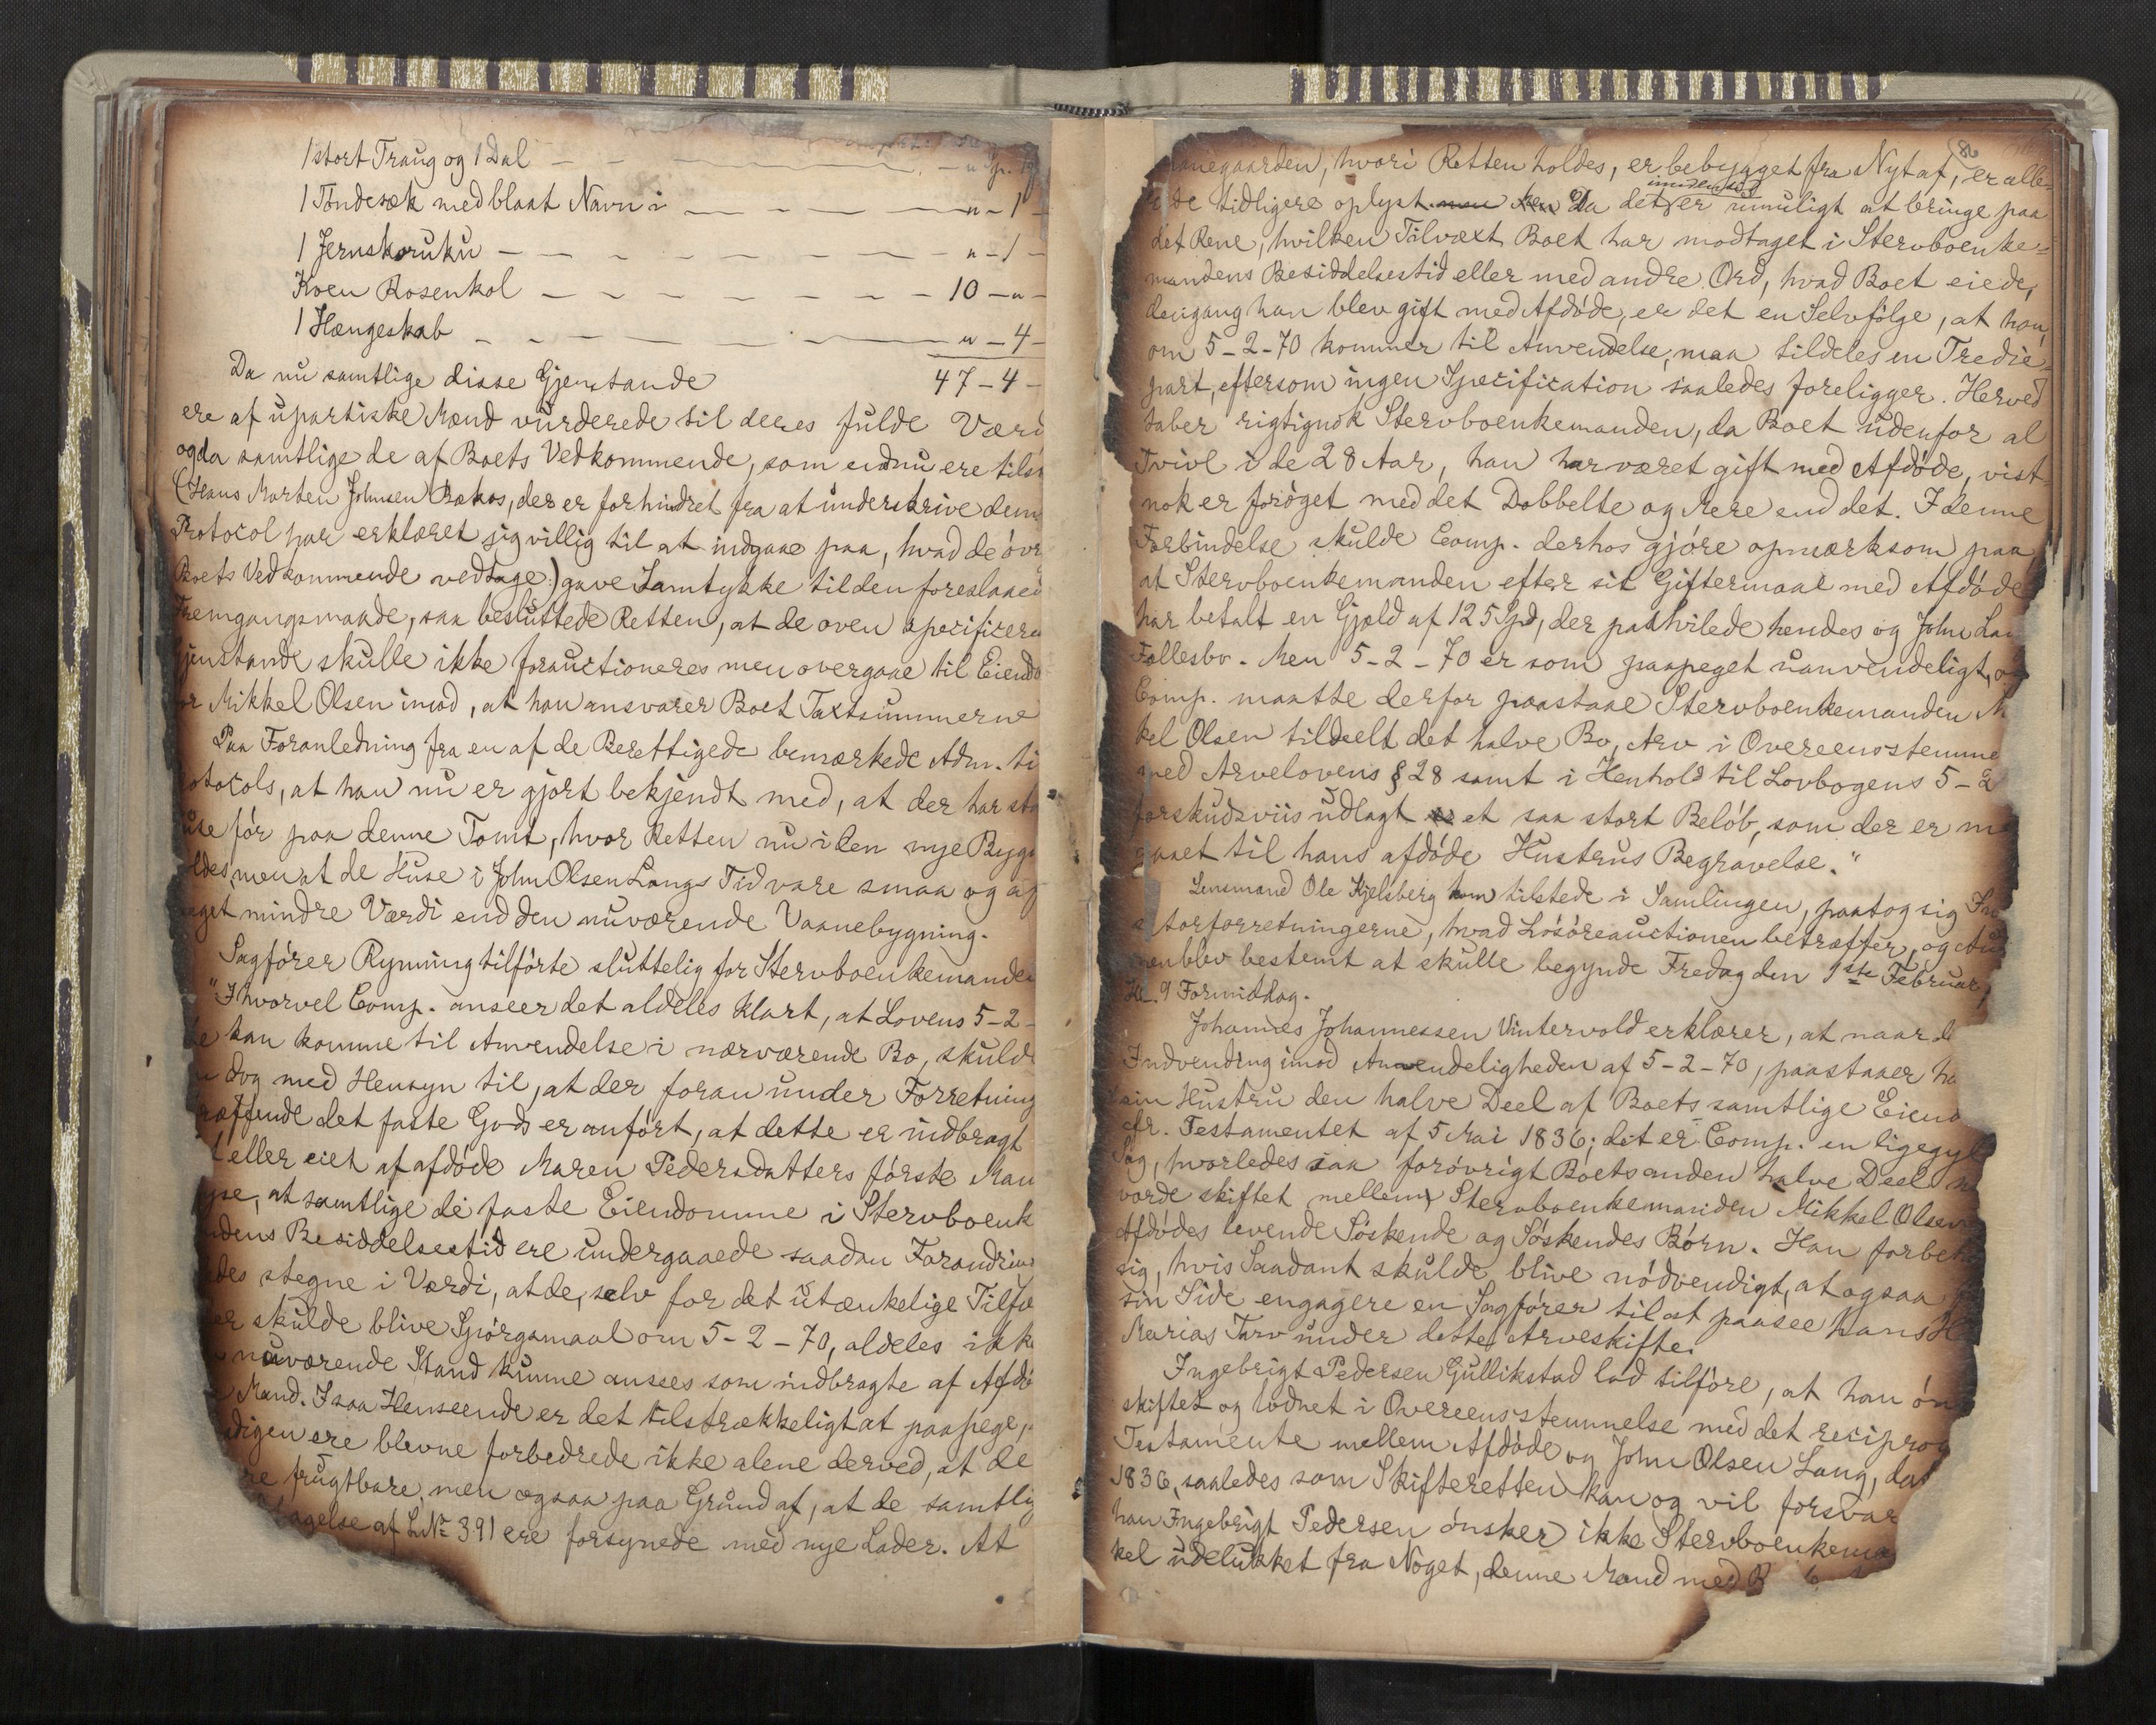 1 stort Traug og 1 Dal — — — —
1 Töndesæk med blaat Navn i — — — — " - 1 -
1 Jernskoruku — — — — " - 1 -
Koen Rosenkol — — — — 10 - " -
1 Hængeskab — — — — " - 4 -
Da nu samtlige disse Gjenstande 47 - 4 -
ere af upartiske Mænd vurderede til deres fulde Værd
og da samtlige de af Boets Vedkommende, som endnu ere tils
(Hans Morten Johnsen Bakos, der er forhindret fra at underskrive denn
Protocol har erklæret sig villig til at indgaae paa, hvad de övr
Boets Vedkommende vedtage) gave Samtykke til den foreslaaed
Fremgangsmaade, saa besluttede Retten, at de oven specificere
jenstande skulle ikke forauctioneres men overgaae til Eiendo
or Mikkel Olsen imod, at han ansvarer Boet Taxtsummerne
Paa Foranledning fra en af de Berettigede bemærkede Adm. ti
otocols, at han nu er gjort bekjendt med, at der har sta
use för paa denne Tomt, hvor Retten nu i den nye Bygn
ldes, men at de Huse i John Olsen Langs Tid vare smaa og af
eget mindre Værdi end den nuværende Vaanebygning.
Sagförer Rynning tilförte sluttelig for Stervboenkemanden
"Ihvorvel Comp. anseer det aldeles klart, at Lovens 5-2-
e kan komme til Anvendelse i nærværende Bo, skuld
dog med Hensyn til, at der foran under Forretning
ræffende det faste Gods er anfört, at dette er indbragt
eller eiet af afdöde Maren Pedersdatters förste Man
yse, at samtlige de faste Eiendomme i Stervboenk
dens Besiddelsestid ere undergaaede saadan Forandrin
des stegne i Værdi, at de, selv for det utænkelige Tilfæ
er skulde blive Spörgsmaal om 5-2-70, aldeles ikk
nuværende Stand kunne ansees som indbragte af Afdö
Mand. I saa Henseende er det tilstrækkeligt at paapege,
digen ere blevne forbedrede ikke alene derved, at de
re frugtbare, men ogsaa paa Grund af, at de samtlig
tagelse af L.No 391 ere forsynede med nye Lader. At
86
aanegaarden, hvori Retten holdes, er bebygget fra Nyt af, er alle-
rede tidligere oplyst. Da det imidlertid er umuligt at bringe paa
det Rene, hvilken Tilvæxt Boet har modtaget i Stervboenke-
mandens Besiddelsestid eller med andre Ord, hvad Boet eiede,
dengang han blev gift med Afdöde, er det en Selvfölge, at han,
om 5-2-70 kommer til Anvendelse, maa tildeles en Tredie-
part, eftersom ingen Specification saaledes foreligger. Herved
taber rigtignok Stervboenkemanden, da Boet udenfor al
Tvivl i de 28 Aar, han har været gift med Afdöde, vist-
nok er foröget med det Dobbelte og Mere end det. I denne
Forbindelse skulde Comp. derhos gjöre opmærksom paa,
at Stervboenkemanden efter sit Giftermaal med Afdöde
har betalt en Gjæld af 125 Spd, der paahvilede hendes og John Lan
Fællesbo. Men 5-2-70 er som paapeget uanvendeligt, og
Comp. maatte derfor paastaae Stervboenkemanden M
kel Olsen tildeelt det halve Bo, Arv i Overeensstemme
med Arvelovens § 28 samt i Henhold til Lovbogens 5-2
forskudsviis udlagt et saa stort Belöb, som der er m
gaaet til hans afdöde Hustrus Begravelse."
Lensmand Ole Kjelsberg kom tilstede i Samlingen, paatog sig In
atorforretningerne, hvad Lösöreauctionen betræffer, og Au
nen blev bestemt at skulle begynde Fredag den 1ste Februar,
Kl. 9 Formiddag.
Johannes Johannessen Vintervold erklærer, at naar d
Indvending imod Anvendeligheden af 5-2-70, paastaaer ha
sin Hustru den halve Deel af Boets samtlige Eiend
cfr. Testamentet af 5 Mai 1836; det er Comp. en ligegyl
Sag, hvorledes saa foróvrigt Boets anden halve Deel m
vorde skiftet mellem Stervboenkemanden Mikkel Olsen
Afdödes levende Söskende og Söskendes Börn. Han forbeh
sig, hvis Saadant skulde blive nödvendigt, at ogsaa
sin Side engagere en Sagförer til at paasee hans H
Marias Tarv under dette Arveskifte.
Ingebrigt Pedersen Gullikstad lod tilföre, at han ön
skiftet og lodnet i Overeensstemmelse med det reciprog
Testamente mellem Afdöde og John Olsen Lang, dat
1836, saaledes som Skifteretten kan og vil forsvar
han Ingebrigt Pedersen önsker ikke Stervboenkema
kel udelukket fra Noget, denne Mand med R